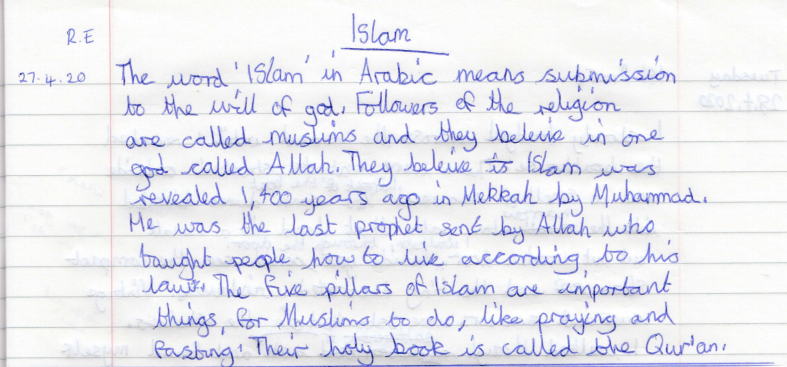 R.E Islam
27.4.20 The word 'Islam' in Arabic means submission
to the will of god. Followers of the religion
are called muslims and they beleive in one
god called Allah. They beleive is Islam was
revealed 1,400 years ago in Mekkah by Muhammad.
He was the last prophet sent by Allah who
taught people how to live according to his
laws. The five pillars of Islam are important
things, for Muslims to do, like praying and
fasting. Their holy book is called the Qur'an.